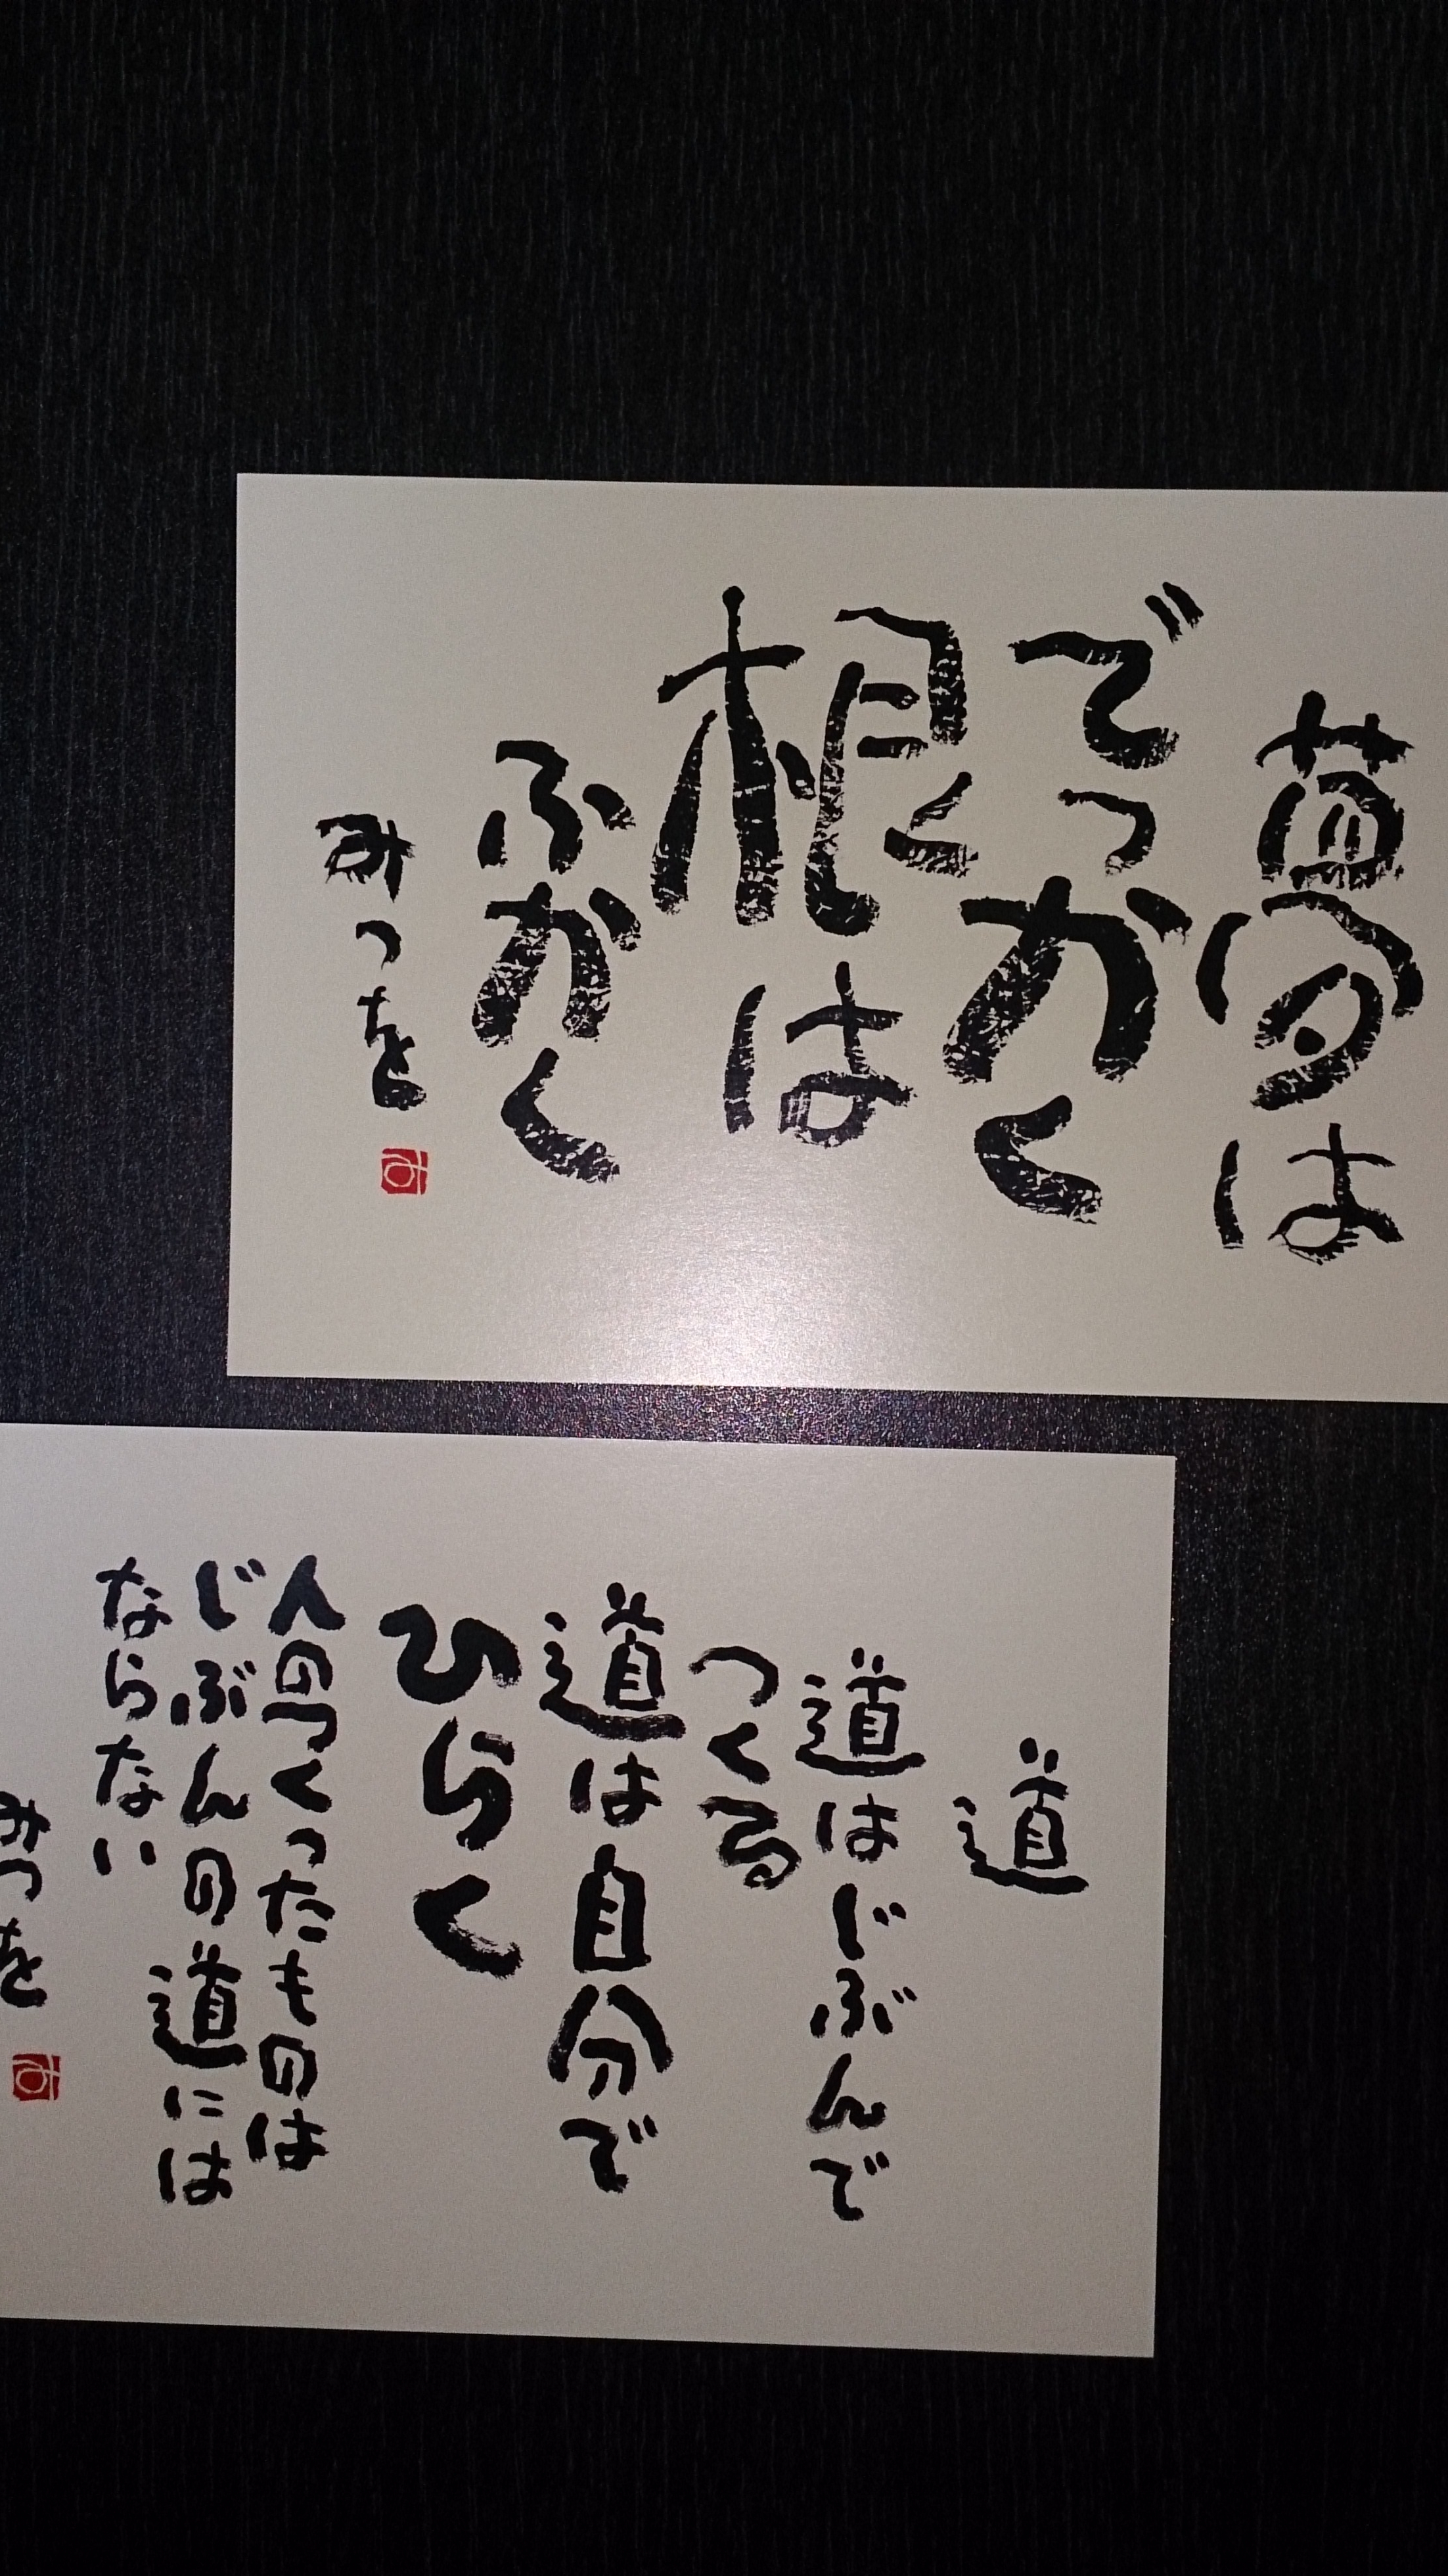 夢は
でっかく
根は
ふかく
みつを
み
道
道はじぶんで
つくる
道は自分で
ひらく
人のつくったものは
じぶんの道には
ならない
みつを
み